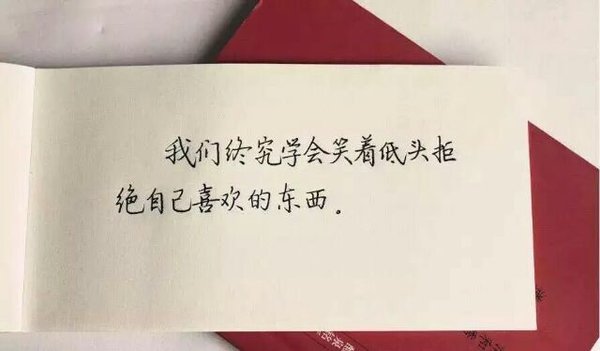 我们终究学会笑着低头拒
绝自己喜欢的东西。